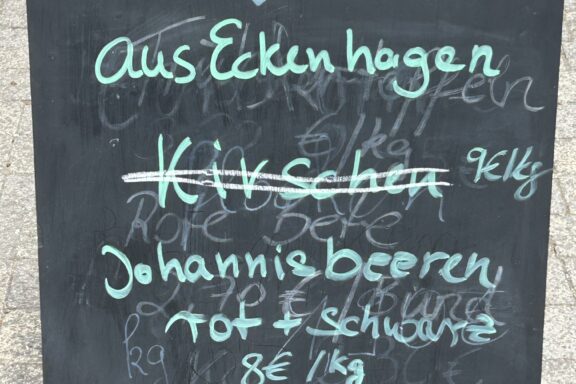 aus Eckenhagen
Kirschen 9€/kg
Johannisbeeren
rot + schwarz
8€/kg